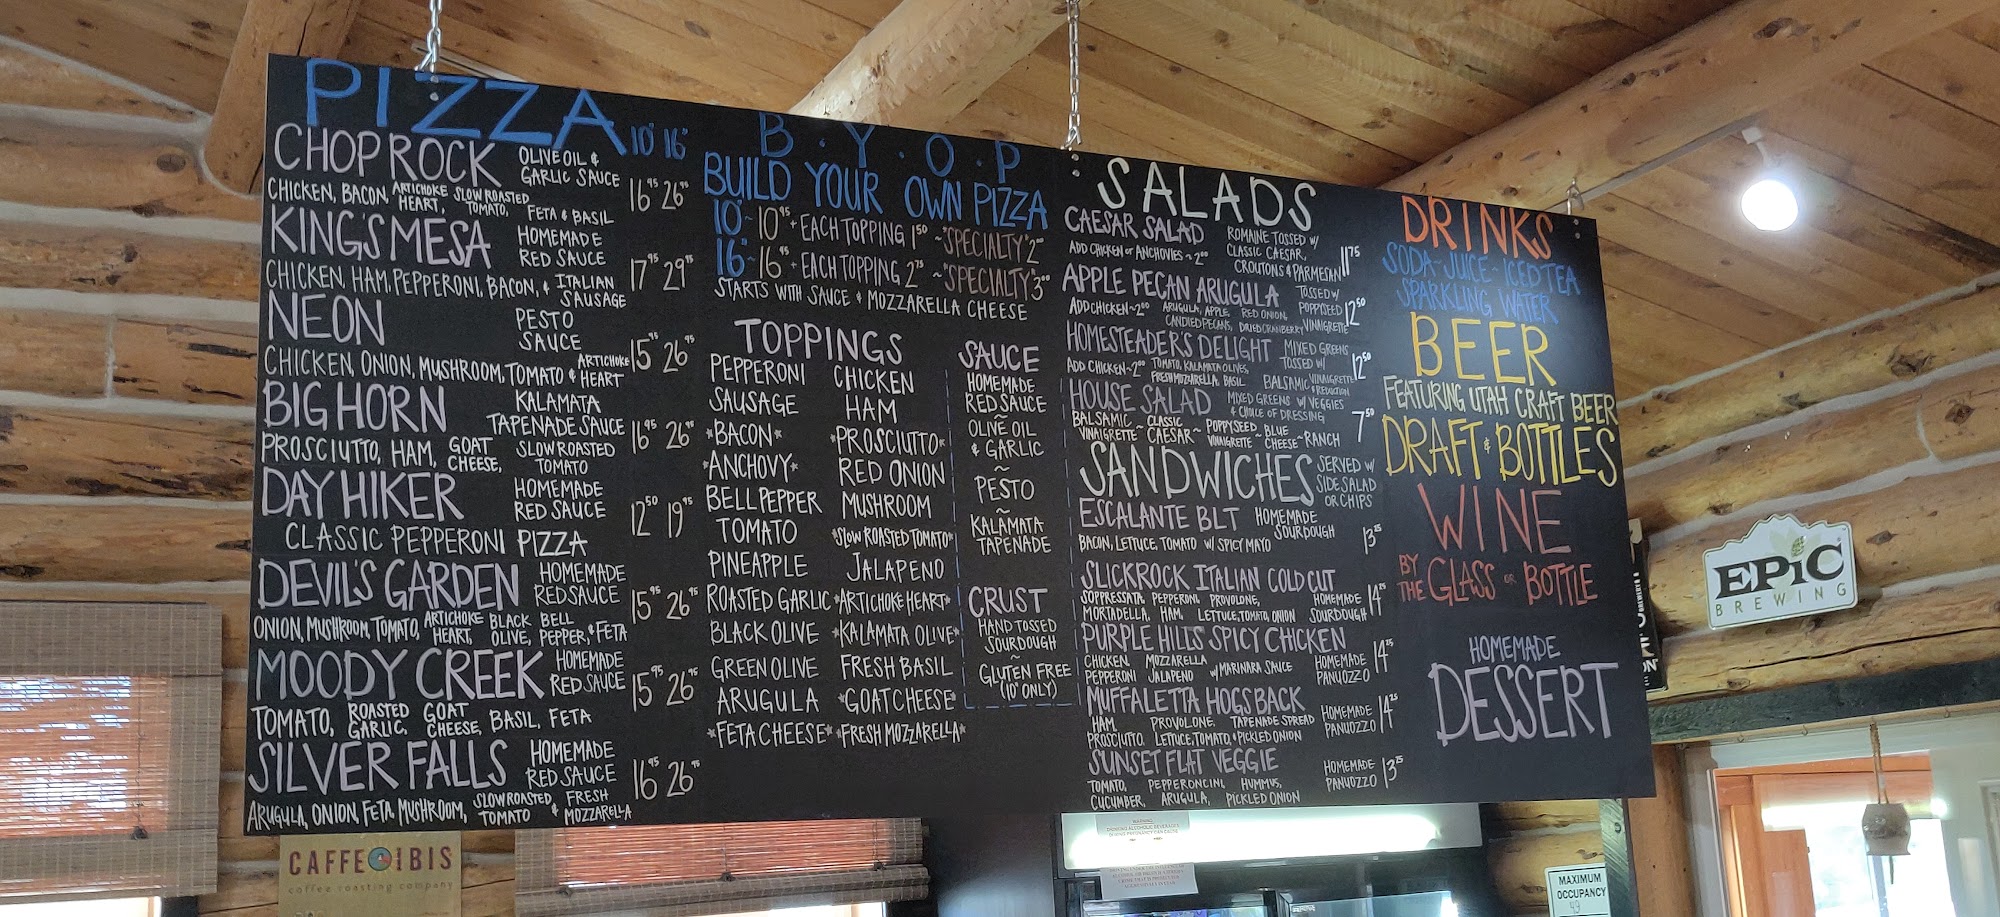 PIZZA 10" 16"
CHOP ROCK OLIVE OIL & GARLIC SAUCE 16⁹⁵ 26⁹⁵
CHICKEN, BACON, ARTICHOKE HEART, SLOW ROASTED TOMATO, FETA & BASIL
KING'S MESA HOMEMADE RED SAUCE 17⁹⁵ 29⁹⁵
CHICKEN, HAM, PEPPERONI, BACON, & ITALIAN SAUSAGE
NEON PESTO SAUCE 15⁹⁵ 26⁹⁵
CHICKEN, ONION, MUSHROOM, TOMATO & ARTICHOKE HEART
BIG HORN KALAMATA TAPENADE SAUCE 16⁹⁵ 26⁹⁵
PROSCIUTTO, HAM, GOAT CHEESE, SLOW ROASTED TOMATO
DAY HIKER HOMEMADE RED SAUCE 12⁵⁰ 19⁹⁵
CLASSIC PEPPERONI PIZZA
DEVIL'S GARDEN HOMEMADE RED SAUCE 15⁹⁵ 26⁹⁵
ONION, MUSHROOM, TOMATO, ARTICHOKE HEART, BLACK OLIVE, BELL PEPPER, & FETA
MOODY CREEK HOMEMADE RED SAUCE 15⁹⁵ 26⁹⁵
TOMATO, ROASTED GARLIC, GOAT CHEESE, BASIL, FETA
SILVER FALLS HOMEMADE RED SAUCE 16⁹⁵ 26⁹⁵
ARUGULA, ONION, FETA, MUSHROOM, SLOW ROASTED TOMATO & FRESH MOZZARELLA
B.Y.O.P
BUILD YOUR OWN PIZZA
10" ~ 10⁹⁵ + EACH TOPPING 1⁵⁰ ~ "SPECIALTY" 2⁰⁰
16" ~ 16⁹⁵ + EACH TOPPING 2⁷⁵ ~ "SPECIALTY" 3⁰⁰
STARTS WITH SAUCE & MOZZARELLA CHEESE
TOPPINGS
PEPPERONI CHICKEN
SAUSAGE HAM
*BACON* *PROSCIUTTO*
*ANCHOVY* RED ONION
BELL PEPPER MUSHROOM
TOMATO *SLOW ROASTED TOMATO*
PINEAPPLE JALAPENO
ROASTED GARLIC *ARTICHOKE HEART*
BLACK OLIVE *KALAMATA OLIVE*
GREEN OLIVE FRESH BASIL
ARUGULA *GOAT CHEESE*
*FETA CHEESE* *FRESH MOZZARELLA*
SAUCE
HOMEMADE
RED SAUCE
~
OLIVE OIL
& GARLIC
~
PESTO
~
KALAMATA
TAPENADE
CRUST
HAND TOSSED
SOURDOUGH
~
GLUTEN FREE
(10" ONLY)
SALADS
CAESAR SALAD ROMAINE TOSSED W/ CLASSIC CAESAR, CROUTONS & PARMESAN 11⁷⁵
ADD CHICKEN OR ANCHOVIES ~ 2⁰⁰
APPLE PECAN ARUGULA TOSSED W/ POPPYSEED VINAIGRETTE 12⁵⁰
ADD CHICKEN ~ 2⁰⁰ ARUGULA, APPLE, RED ONION, CANDIED PECANS, DRIED CRANBERRY
HOMESTEADERS DELIGHT MIXED GREENS TOSSED W/ BALSAMIC VINAIGRETTE & REDUCTION 12⁵⁰
ADD CHICKEN ~ 2⁰⁰ TOMATO, KALAMATA OLIVES, FRESH MOZZARELLA, BASIL
HOUSE SALAD MIXED GREENS W/ VEGGIES & CHOICE OF DRESSING 7⁵⁰
BALSAMIC VINAIGRETTE ~ CLASSIC CAESAR ~ POPPYSEED VINAIGRETTE ~ BLUE CHEESE ~ RANCH
SANDWICHES SERVED W/ SIDE SALAD OR CHIPS
ESCALANTE BLT HOMEMADE SOURDOUGH 13²⁵
BACON, LETTUCE, TOMATO W/ SPICY MAYO
SLICKROCK ITALIAN COLD CUT
SOPPRESSATA, PEPPERONI, PROVOLONE, HOMEMADE SOURDOUGH 14²⁵
MORTADELLA, HAM, LETTUCE, TOMATO, ONION
PURPLE HILLS SPICY CHICKEN
CHICKEN, MOZZARELLA W/ MARINARA SAUCE HOMEMADE PANUOZZO 14²⁵
PEPPERONI, JALAPENO
MUFFALETTA HOGSBACK
HAM, PROVOLONE, TAPENADE SPREAD HOMEMADE PANUOZZO 14²⁵
PROSCIUTTO, LETTUCE, TOMATO, & PICKLED ONION
SUNSET FLAT VEGGIE HOMEMADE PANUOZZO 13²⁵
TOMATO, PEPPERONCINI, HUMMUS,
CUCUMBER, ARUGULA, PICKLED ONION
DRINKS
SODA ~ JUICE ~ ICED TEA
SPARKLING WATER
BEER
FEATURING UTAH CRAFT BEER
DRAFT & BOTTLES
WINE
BY THE GLASS OR BOTTLE
HOMEMADE
DESSERT
EPIC
BREWING
CAFFE IBIS
coffee roasting company
WARNING
MAXIMUM
OCCUPANCY
49